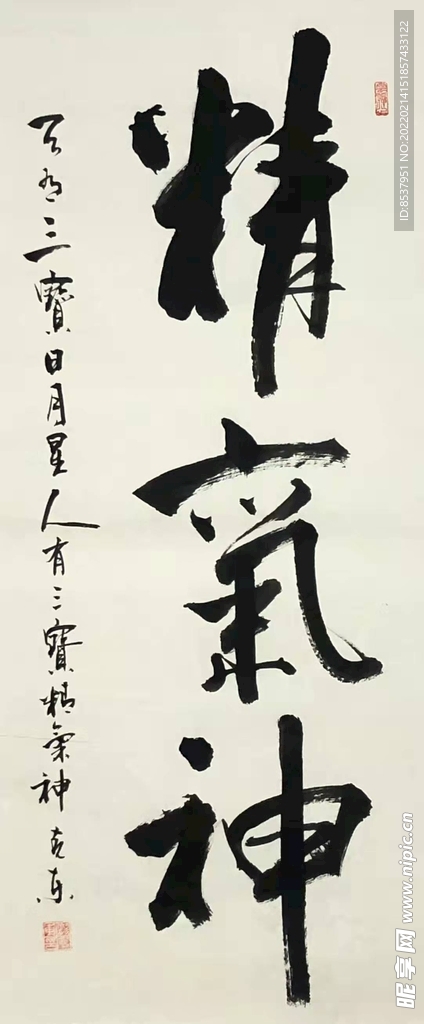 精氣神
天有三寶日月星人有三寶精氣神 克東
ID:8537951 NO:20220214151857433122
昵享网 www.nipic.cn